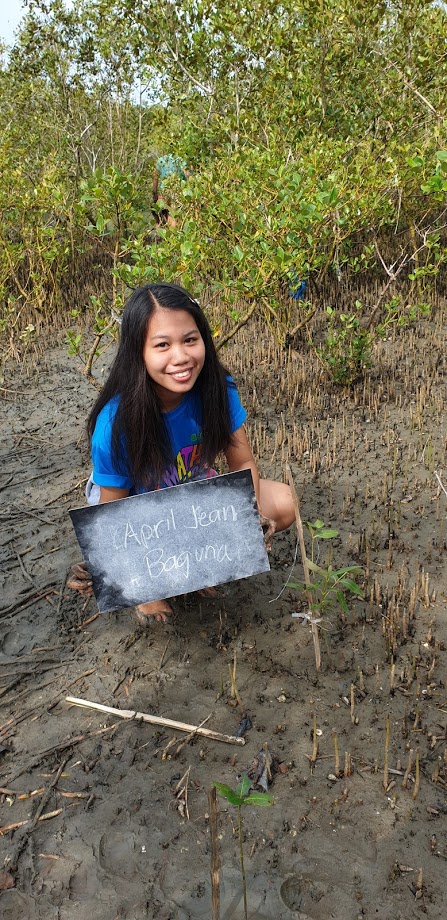 April Jean
Baguna